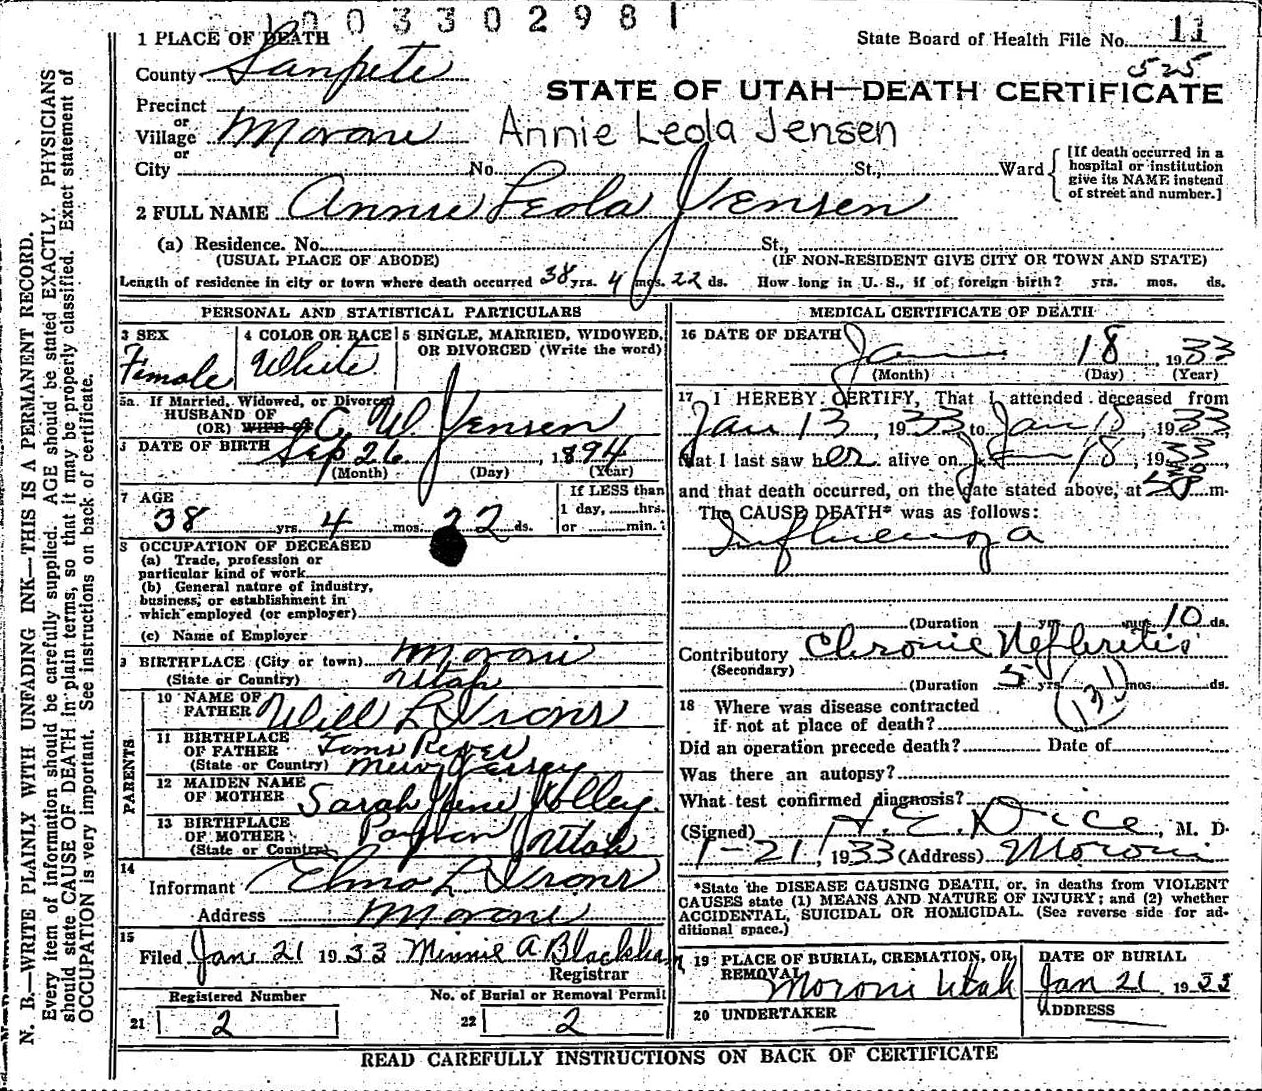 1003302981
1 PLACE OF DEATH
State Board of Health File No. 11
525
County Sanpete
STATE OF UTAH—DEATH CERTIFICATE
Precinct
or
Village Moroni
Annie Leola Jensen
or
City No. St., Ward
[If death occurred in a
hospital or institution
give its NAME instead
of street and number.]
2 FULL NAME Annie Leola Jensen
(a) Residence. No. St.,
(USUAL PLACE OF ABODE) (IF NON-RESIDENT GIVE CITY OR TOWN AND STATE)
Length of residence in city or town where death occurred 38 yrs. 4 mos. 22 ds. How long in U. S., if of foreign birth? yrs. mos. ds.
PERSONAL AND STATISTICAL PARTICULARS
3 SEX
Female
4 COLOR OR RACE
White
5 SINGLE, MARRIED, WIDOWED,
OR DIVORCED (Write the word)
5a. If Married, Widowed, or Divorced
HUSBAND OF
(OR) WIFE OF C. W. Jensen
6 DATE OF BIRTH Sep 26, 1894
(Month) (Day) (Year)
7 AGE
38 yrs. 4 mos. 22 ds.
If LESS than
1 day, hrs.
or min.
8 OCCUPATION OF DECEASED
(a) Trade, profession or
particular kind of work
(b) General nature of industry,
business, or establishment in
which employed (or employer)
(c) Name of Employer
9 BIRTHPLACE (City or town) Moroni
(State or Country) Utah
PARENTS
10 NAME OF
FATHER Will L Irons
11 BIRTHPLACE
OF FATHER Toms River
(State or Country) New Jersey
12 MAIDEN NAME
OF MOTHER Sarah Jane Wolley
13 BIRTHPLACE
OF MOTHER Payson Utah
(State or Country)
14
Informant Elmo L Irons
Address Moroni
15
Filed Jan 21 1933 Minnie A Blackham
Registrar
Registered Number
21 2
No. of Burial or Removal Permit
22 2
MEDICAL CERTIFICATE OF DEATH
16 DATE OF DEATH Jan 18 1933
(Month) (Day) (Year)
17 I HEREBY CERTIFY, That I attended deceased from
Jan 13, 1933 to Jan 18, 1933
that I last saw her alive on Jan 18, 1933,
and that death occurred, on the date stated above, at m.
The CAUSE DEATH* was as follows:
Influenza
(Duration yrs. mos. 10 ds.
Contributory Chronic Nephritis
(Secondary)
(Duration 5 yrs. mos. ds.
131
18 Where was disease contracted
if not at place of death?
Did an operation precede death? Date of
Was there an autopsy?
What test confirmed diagnosis?
(Signed) H. E. Dice, M. D.
1-21, 1933 (Address) Moroni
*State the DISEASE CAUSING DEATH, or, in deaths from VIOLENT
CAUSES state (1) MEANS AND NATURE OF INJURY; and (2) whether
ACCIDENTAL, SUICIDAL OR HOMICIDAL. (See reverse side for ad-
ditional space.)
19 PLACE OF BURIAL, CREMATION, OR
REMOVAL
Moroni Utah
DATE OF BURIAL
Jan 21 1933
20 UNDERTAKER
ADDRESS
READ CAREFULLY INSTRUCTIONS ON BACK OF CERTIFICATE
N. B.—WRITE PLAINLY WITH UNFADING INK—THIS IS A PERMANENT RECORD.
Every item of information should be carefully supplied. AGE should be stated EXACTLY. PHYSICIANS
should state CAUSE OF DEATH in plain terms, so that it may be properly classified. Exact statement of
OCCUPATION is very important. See instructions on back of certificate.